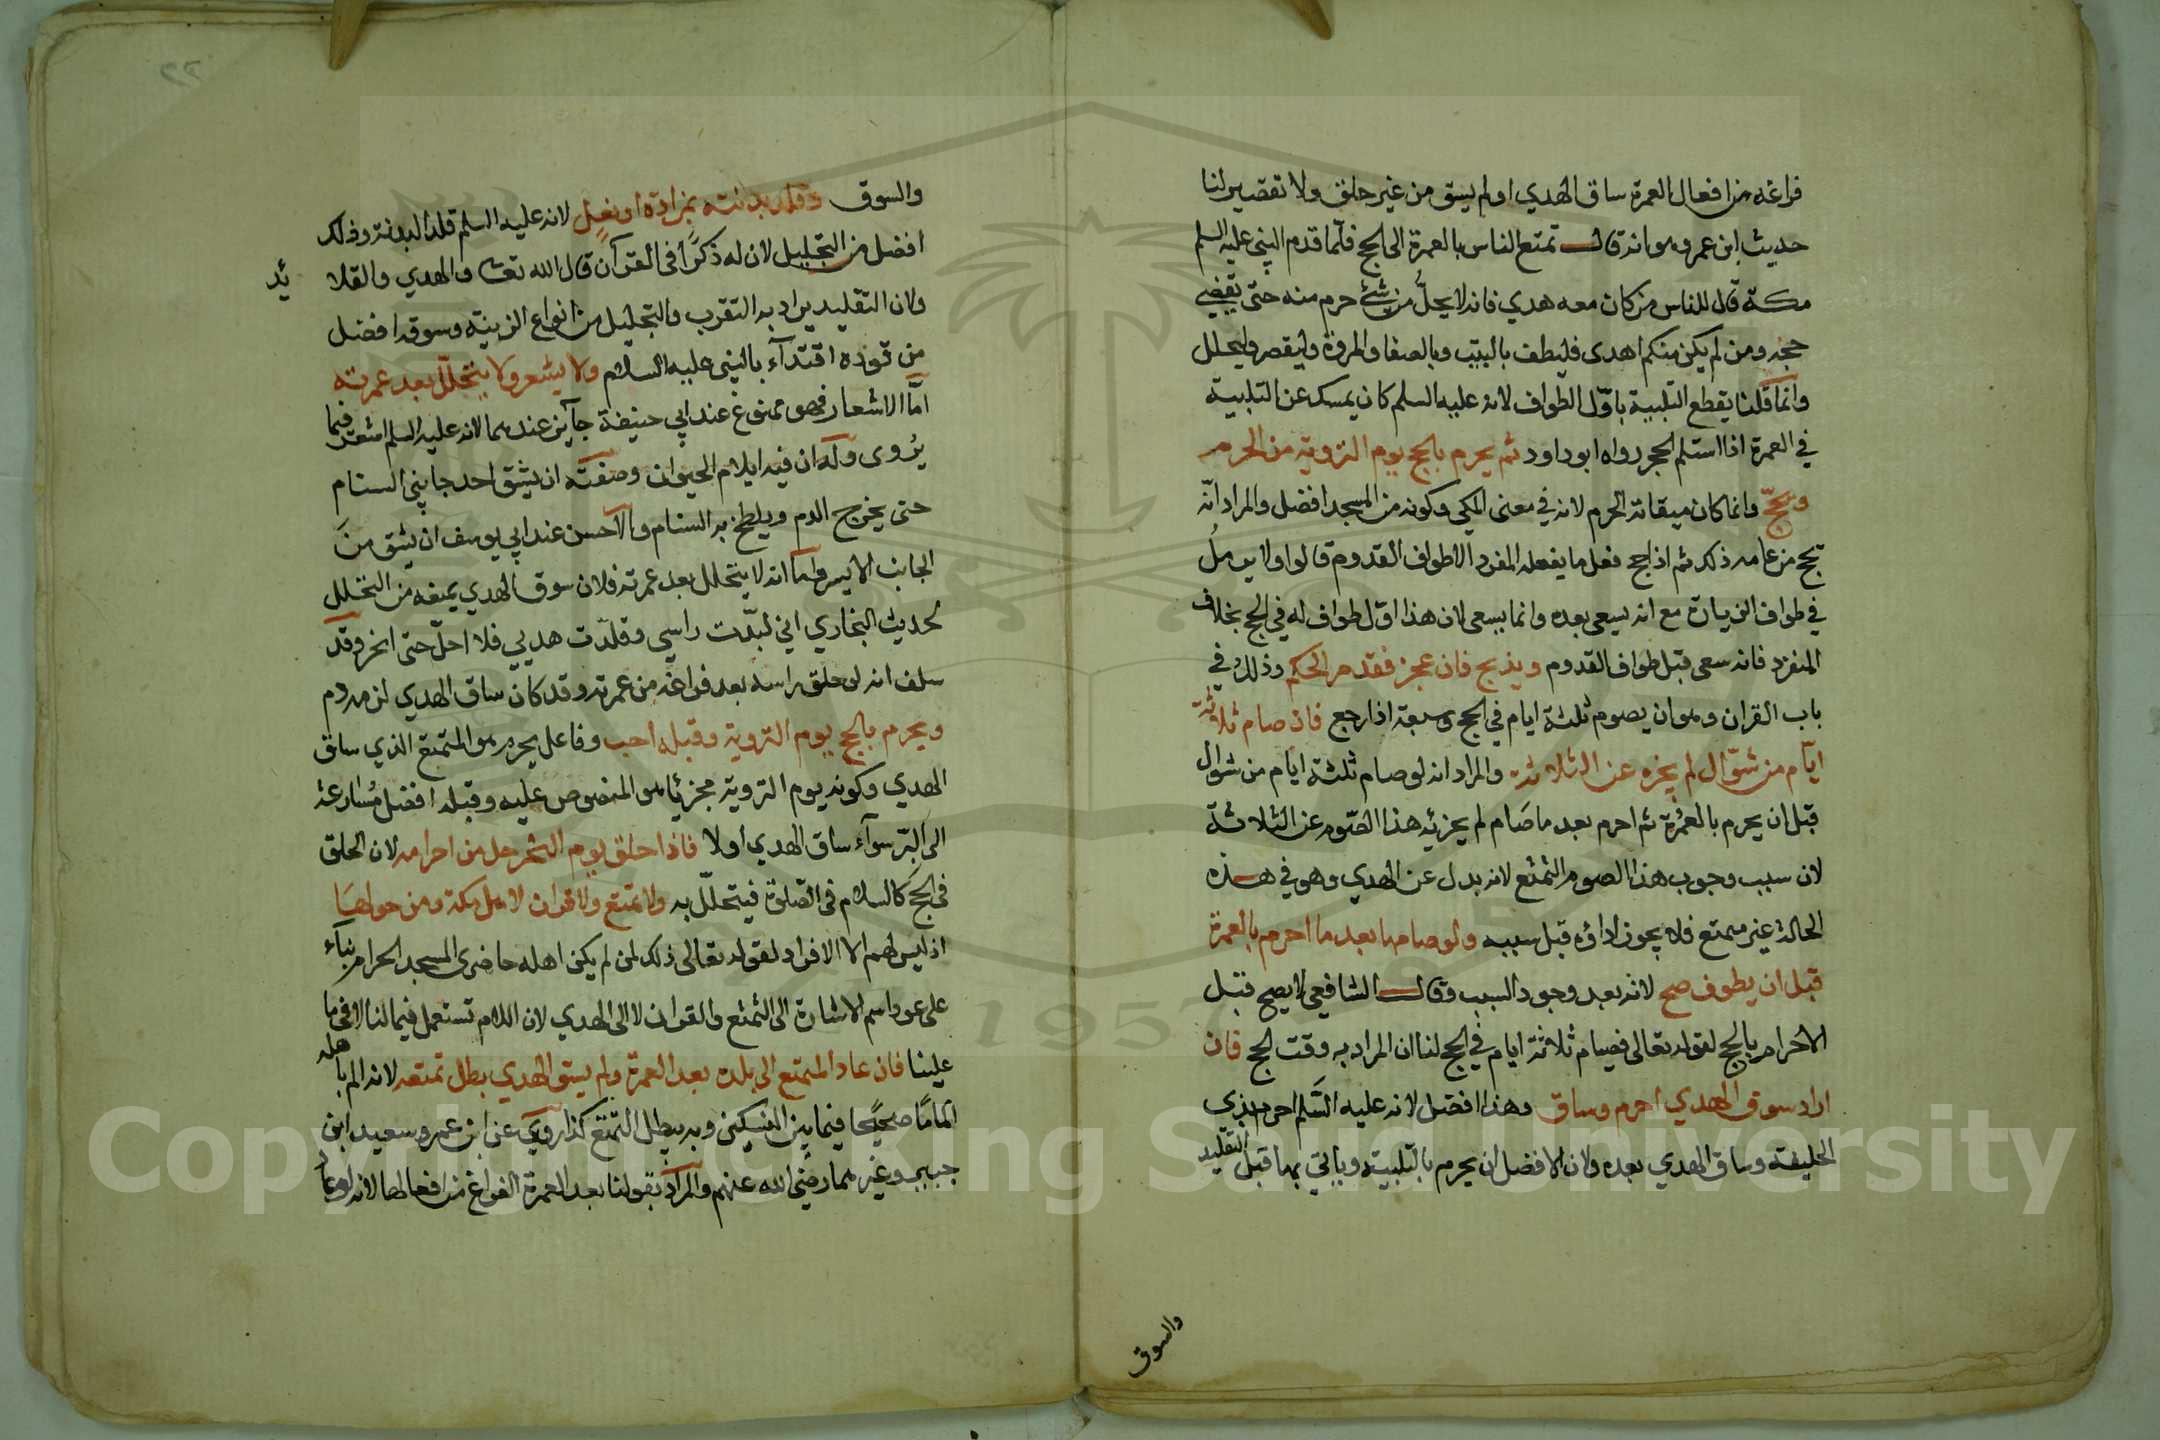 فراغه من افعال العمرة ساق الهدي او لم يسق من غير حلق ولا تقصير لنا
حديث ابن عمر وهو انه قال تمتع الناس بالعمرة الى الحج فلما قدم النبي عليه السلم
مكة قال للناس من كان معه هدي فانه لا يحلُّ من شئ حرم منه حتى يقضي
حجه ومن لم يكن منكم اهدى فليطف بالبيت وبالصفا والمروة وليقصر وليحلل
وانما قلنا يقطع التلبية باول الطواف لانه عليه السلم كان يمسك عن التلبية
في العمرة اذا استلم الحجر رواه ابو داود ثم يحرم بالحج يوم التروية من الحرم
ويحجّ وانما كان ميقاته الحرم لانه في معنى المكي وكونه من المسجد افضل والمراد انّه
يحج من عامه ذلك ثم اذا حج فعل ما يفعله المفرد الا طواف القدوم قالوا ولا يرملُ
في طواف الزيارة مع انه يسعى بعده وانما يسعى لان هذا اول طواف له في الحج بخلاف
المنفرد فانه سعى قبل طواف القدوم ويذبح فان عجز فقد مر الحكم وذلك في
باب القران وهو ان يصوم ثلثة ايام في الحج وسبعة اذا رجع فان صام ثلاثة
ايّام من شوّال لم يجزه عن الثلاثة والمراد انه لو صام ثلثة ايام من شوال
قبل ان يحرم بالعمرة ثم احرم بعد ما صَام لم يجزئه هذا الصّوم عن الثلاثة
لان سبب وجوب هذا الصوم التمتع لانه بدل عن الهدي وهو في هذه
الحالة غير متمتع فلا يجوز اداؤه قبل سببه ولو صامها بعد ما احرم بالعمرة
قبل ان يطوف صح لانه بعد وجود السبب وقال الشافعي لا يصح قبل
الاحرام بالحج لقوله تعالى فصيام ثلاثة ايام في الحج لنا ان المراد به وقت الحج فان
اراد سوق الهدي احرم وساق وهذا افضل لانه عليه السَّلم احرم بذي
الحليفة وساق الهدي بعده ولان الافضل ان يحرم بالتلبية وياتي بها قبل التقليد
والسوق
والسوق وقلد بدنته بمزادة او نعل لانه عليه السلم قلد البدنة وذلك
افضل من التجليل لان له ذكرًا في القرآن قال الله تعا والهدي والقلا
ئد
ولان التقليد يراد به التقرب والتجليل من انواع الزينة وسوقه افضل
من قوده اقتدآء بالنبي عليه السلام ولا يشعر ولا يتحلل بعد عمرته
امّا الاشعار فهو ممنوع عند ابي حنيفة جايز عندهما لانه عليه السلم اشعر فيما
يُروى وله ان فيه ايلام الحيوان وصفته ان يشق احد جانبي السنام
حتى يخرج الدم ويلطخ به السنام والاحسن عند ابي يوسف ان يشق من
الجانب الايسر واما انه لا يتحلل بعد عمرته فلان سوق الهدي يمنعه من التحلل
لحديث البخاري اني لبدّت راسي وقلدّت هديي فلا احلّ حتى انحر وقد
سلف انه لو حلق راسه بعد فراغه من عمرته وقد كان ساق الهدي لزمه دم
ويحرم بالحج يوم التروية وقبله احب وفاعل يحرم هو المتمتع الذي ساق
الهدي وكونه يوم التروية مجزئا هو المنصوص عليه وقبله افضل مُسارعة
الى البّر سوآء ساق الهدي اولا فاذا حلق يوم النحر حل من احرامه لان الحلق
في الحجّ كالسلام في الصّلوة فيتحلّل به ولا تمتع ولا قران لاهل مكة ومن حولها
اذ ليس لهم الا الافراد لقوله تعالى ذلك لمن لم يكن اهله حاضري المسجد الحرام بنآء
على عود اسم الاشارة الى التمتع والقران لا الى الهدي لان اللام تستعمل فيما لنا لا في ما
علينا فان عاد المتمتع الى بلده بعد العمرة ولم يسق الهدي بطل تمتعه لانه الم باهله
المامًا صحيحًا فيما بين النسكين وبه يبطل التمتع كذا روي عن ابن عمر وسعيد ابن
جبير وغيرهما رضي الله عنهم والمراد بقولنا بعد العمرة الفراغ من افعالها لانه لو عاد
٢٢
1957
Copyright © King Saud University